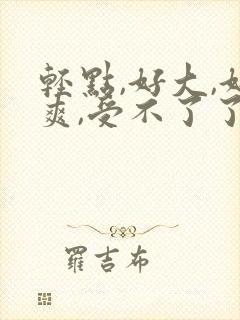 輕點,好大,好
爽,受不了了
羅吉布